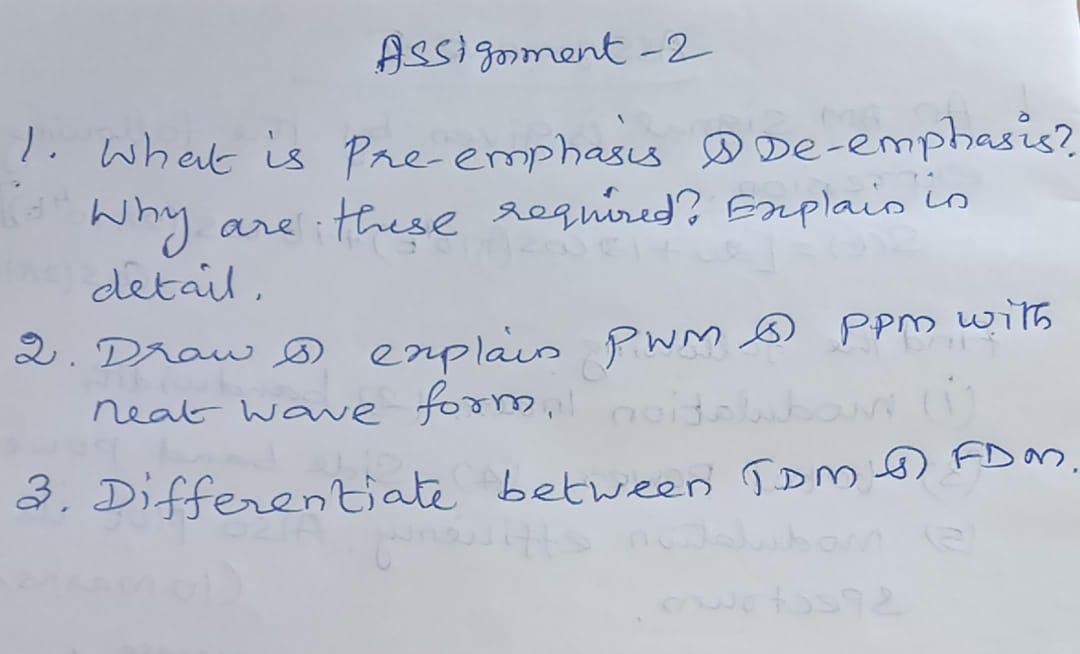 Assignment -2
1. What is Pre-emphasis & De-emphasis?
Why are these required? Explain in
detail.
2. Draw & explain PWM & PPM with
neat wave form.
3. Differentiate between TDM & FDM.